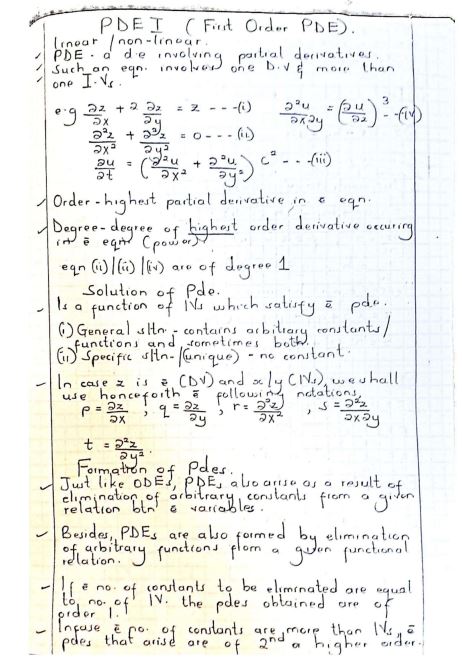 PDE I (First Order PDE).
linear / non-linear.
✓ PDE - a d.e involving partial derivatives.
✓ Such an eqn. involves one D.V & more than
one I.Vs.
e.g ∂z/∂x + 2 ∂z/∂y = z ---(i) ∂²u/∂x∂y = (∂u/∂z)³ --(iv)
∂²z/∂x² + ∂²z/∂y² = 0 --- (ii)
∂u/∂t = (∂²u/∂x² + ∂²u/∂y²) c² --- (iii)
✓ Order - highest partial derivative in ē eqn.
✓ Degree - degree of highest order derivative occuring
in ē eqn (power)
eqn (ii) | (iii) | (iv) are of degree 1
Solution of Pde.
- Is a function of IVs which satisfy ē pde.
(i) General sltn - contains arbitrary constants /
functions and sometimes both.
(ii) Specific sltn - (unique) - no constant.
- In case z is ē (DV) and x/y (IVs), we shall
use henceforth ē following notations,
p = ∂z/∂x , q = ∂z/∂y , r = ∂²z/∂x² , s = ∂²z/∂x∂y
t = ∂²z/∂y².
Formation of Pdes.
✓ Just like ODEs, PDEs also arise as a result of
elimination of arbitrary constants from a given
relation btn ē variables.
✓ Besides, PDEs are also formed by elimination
of arbitrary functions from a given functional
relation.
- If ē no. of constants to be eliminated are equal
to no. of IV. the pdes obtained are of
order 1.
- Incase ē no. of constants are more than IVs, ē
pdes that arise are of 2nd a higher order.